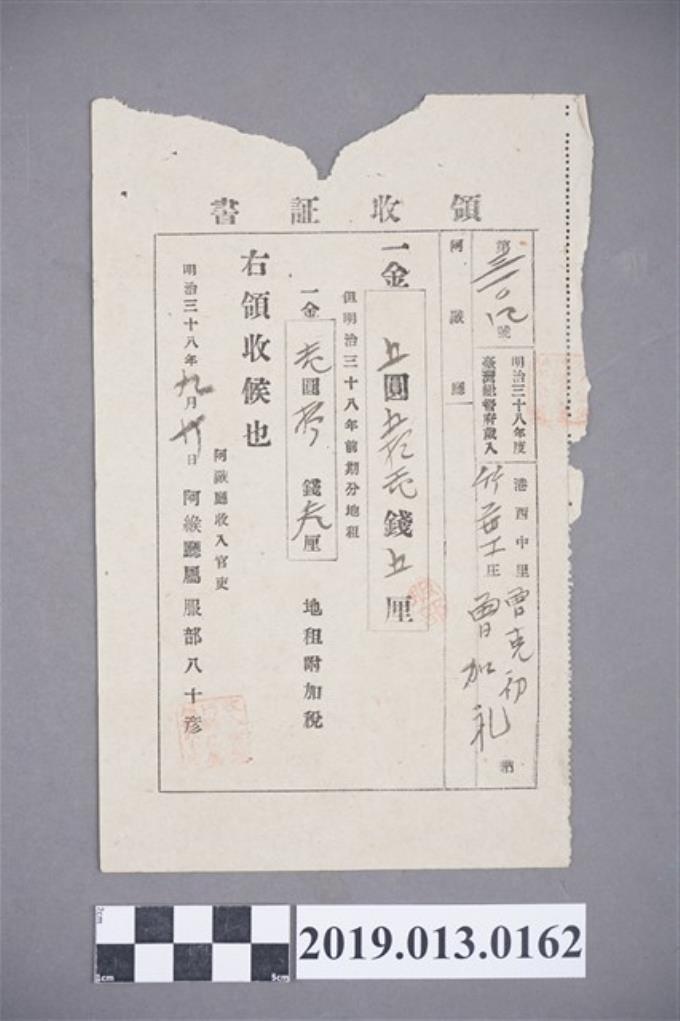 領收証書
第三一〇八號
明治三十八年度
臺灣總督府歲入
港西中里
竹葉庄
曾克初
曾加礼
納
阿緱廳
一金五圓五拾弍錢五厘
但明治三十八年前期分地租
一金壱圓 錢 厘 地租附加税
右領收候也
明治三十八年九月 日
阿緱廳收入官吏
阿緱廳屬服部八十彥
2cm
1cm
5cm
2019.013.0162